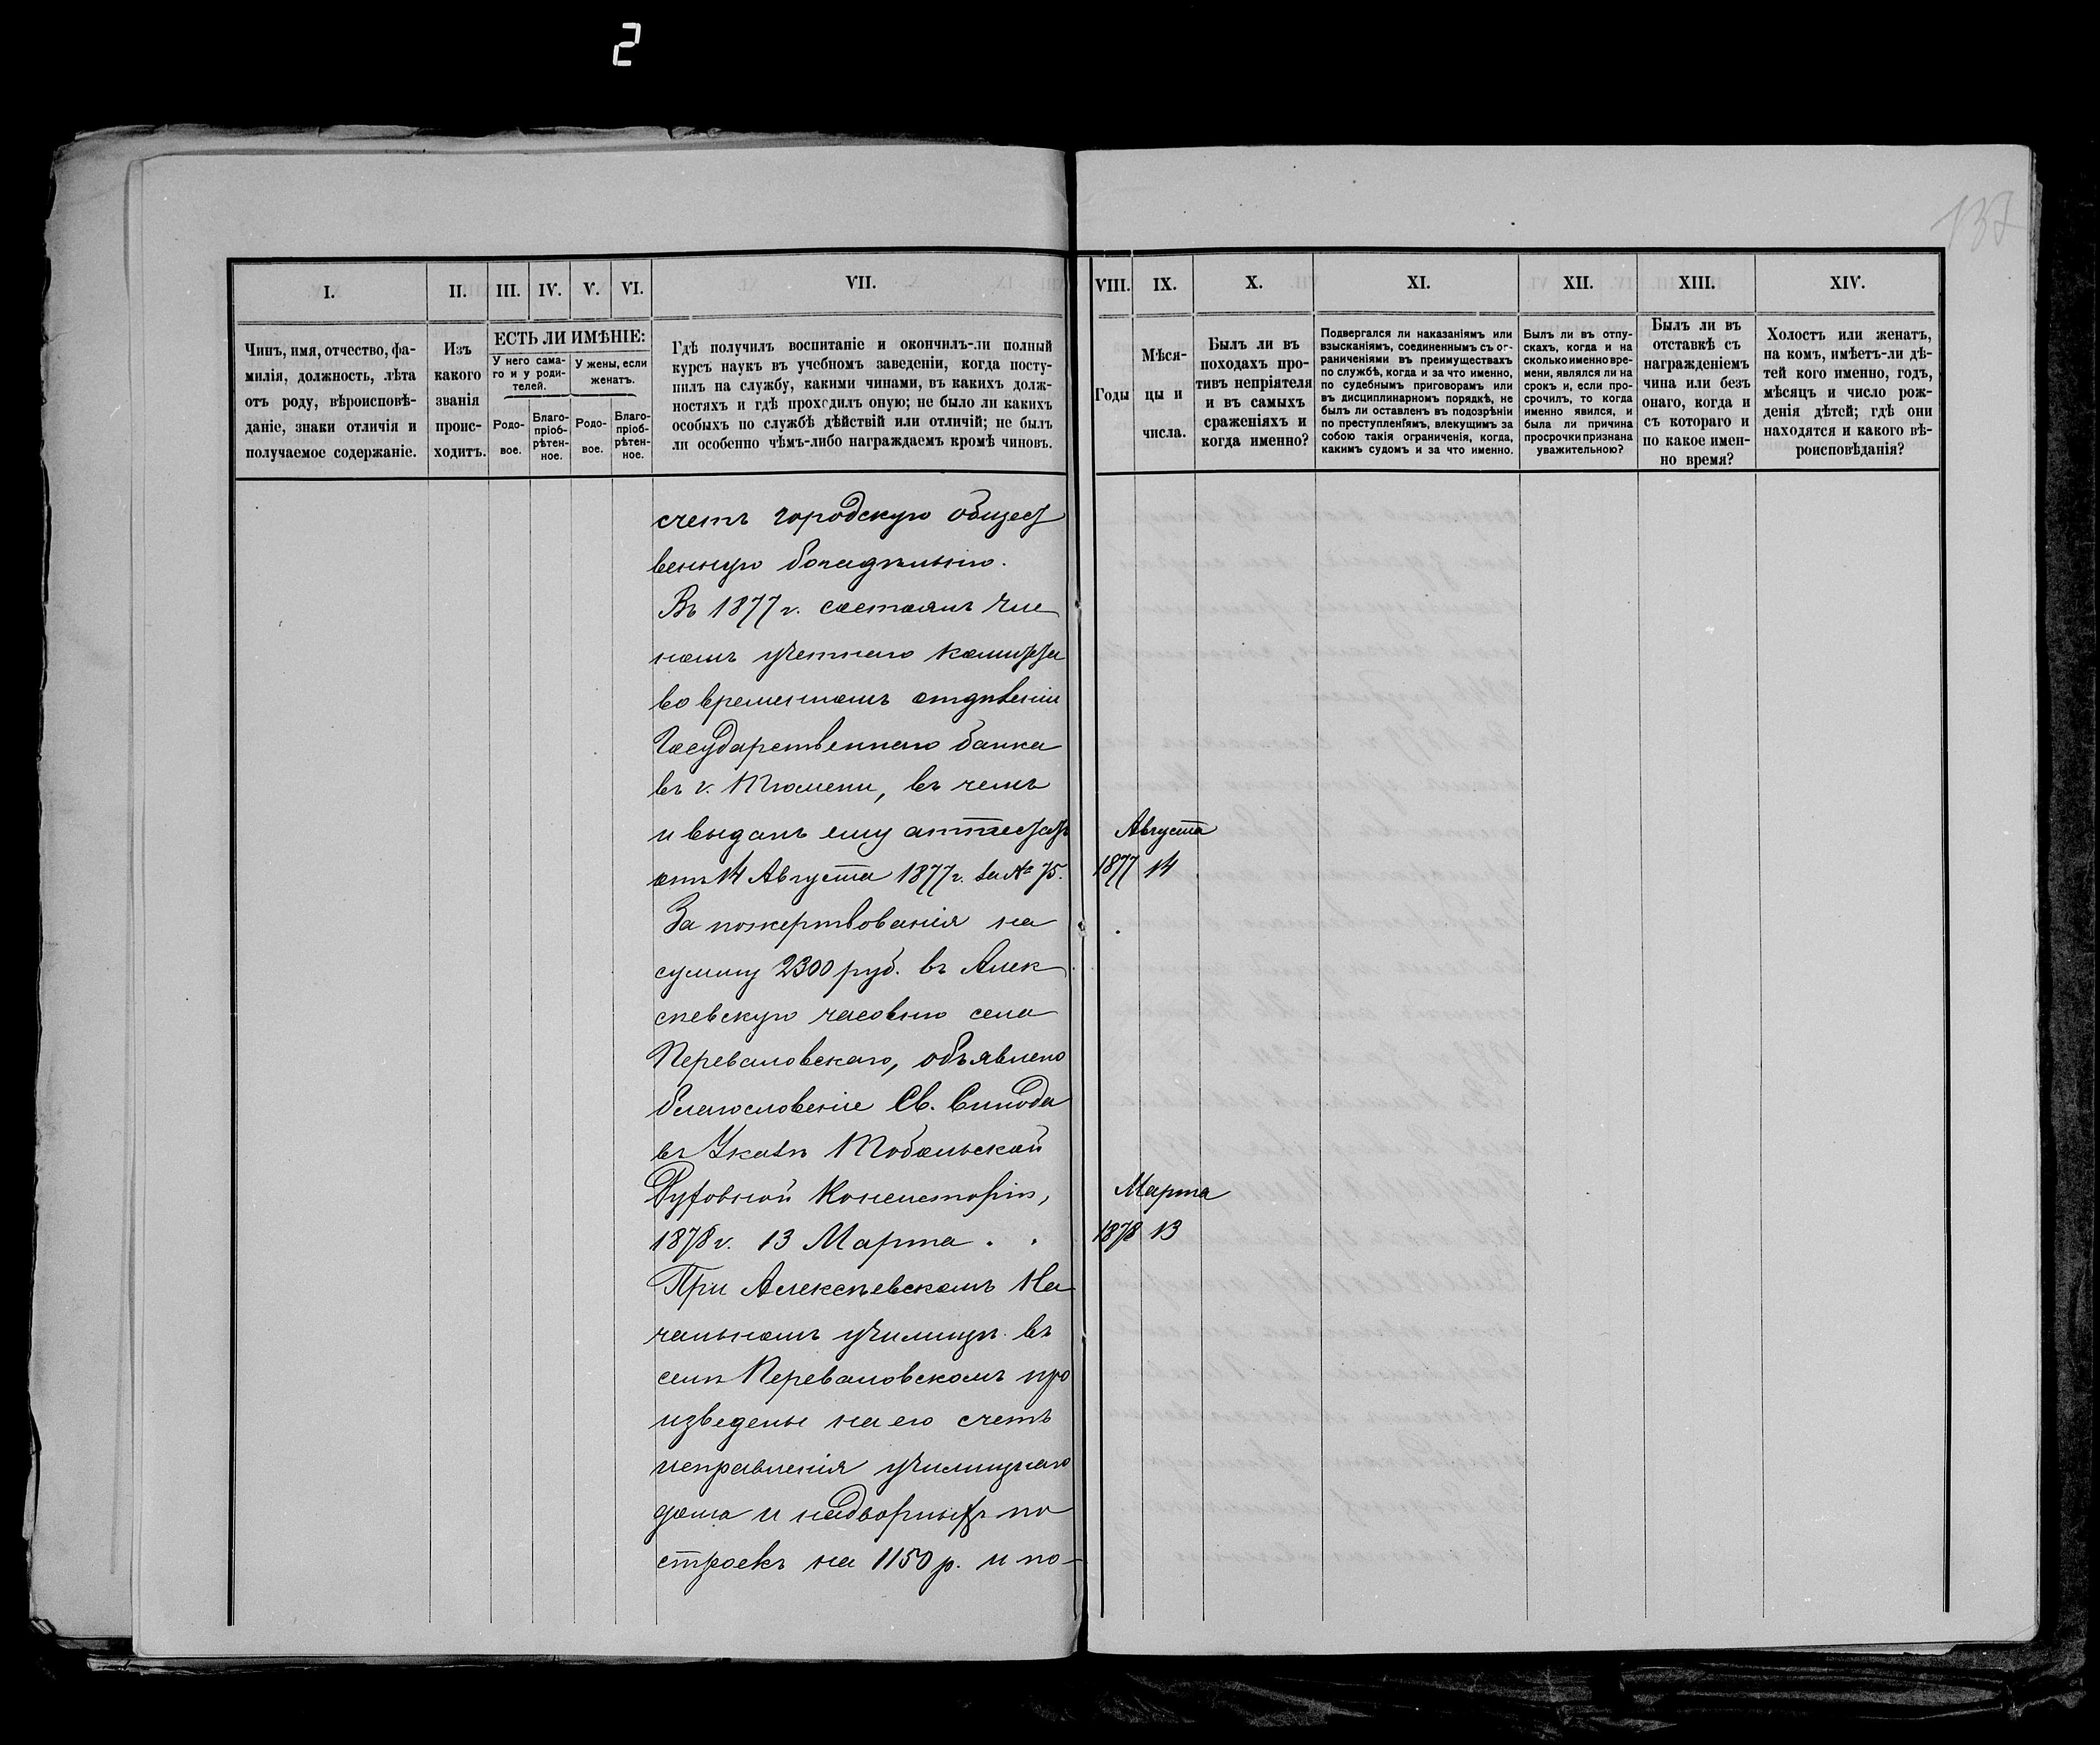 2
137
I.
II.
III.
IV.
V.
VI.
VII.
Чинъ, имя, отчество, фа-
милія, должность, лѣта
отъ роду, вѣроисповѣ-
даніе, знаки отличія и
получаемое содержаніе.
Изъ
какого
званія
проис-
ходитъ.
ЕСТЬ ЛИ ИМѢНІЕ:
У него сама-
го и у роди-
телей.
У жены, если
женатъ.
Родо-
вое.
Благо-
пріоб-
рѣтен-
ное.
Родо-
вое.
Благо-
пріоб-
рѣтен-
ное.
Гдѣ получилъ воспитаніе и окончилъ-ли полный
курсъ наукъ въ учебномъ заведеніи, когда посту-
пилъ на службу, какими чинами, въ какихъ долж-
ностяхъ и гдѣ проходилъ оную; не было ли какихъ
особыхъ по службѣ дѣйствій или отличій; не былъ
ли особенно чѣмъ-либо награждаемъ кромѣ чиновъ.
счетъ городскую общест
венную богадѣльню.
Въ 1877 г. состоялъ чле
номъ учетнаго комитета
во временномъ отдѣленіи
Государственнаго банка
въ г. Тюмени, въ чемъ
и выданъ ему аттестатъ
отъ 14 Августа 1877 г. за № 75.
За пожертвованія на
сумму 2300 руб. въ Алек
сѣевскую часовню села
Переваловскаго, объявлено
благословеніе Св. Синода
въ Указѣ Тобольской
Духовной Консисторіи,
1878 г. 13 Марта . .
При Алексѣевскомъ На
чальномъ училищѣ въ
селѣ Переваловскомъ про
изведены на его счетъ
исправленія училищнаго
дома и надворныхъ по
строекъ на 1150 р. и по-
VIII.
IX.
X.
XI.
XII.
XIII.
XIV.
Годы
Мѣся-
цы и
числа.
Былъ ли въ
походахъ про-
тивъ непріятеля
и въ самыхъ
сраженіяхъ и
когда именно?
Подвергался ли наказаніямъ или
взысканіямъ, соединеннымъ съ ог-
раниченіями въ преимуществахъ
по службѣ, когда и за что именно,
по судебнымъ приговорамъ или
въ дисциплинарномъ порядкѣ, не
былъ ли оставленъ въ подозрѣніи
по преступленіямъ, влекущимъ за
собою такія ограниченія, когда,
какимъ судомъ и за что именно.
Былъ ли въ отпу-
скахъ, когда и на
сколько именно вре-
мени, являлся ли на
срокъ и, если про-
срочилъ, то когда
именно явился, и
была ли причина
просрочки признана
уважительною?
Былъ ли въ
отставкѣ съ
награжденіемъ
чина или безъ
онаго, когда и
съ котораго и
по какое имен-
но время?
Холостъ или женатъ,
на комъ, имѣетъ-ли дѣ-
тей кого именно, годъ,
мѣсяцъ и число рож-
денія дѣтей; гдѣ они
находятся и какого вѣ-
роисповѣданія?
Августа
1877 14
Марта
1878 13